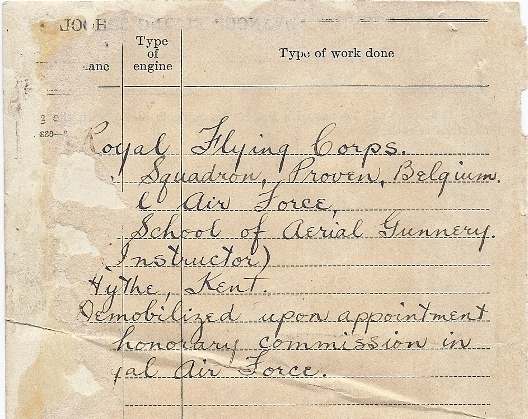 Type of engine
Type of work done
Royal Flying Corps.
Squadron, Proven, Belgium.
l Air Force,
School of Aerial Gunnery.
Instructor)
Hythe, Kent.
Demobilized upon appointment
honorary commission in
yal Air Force.